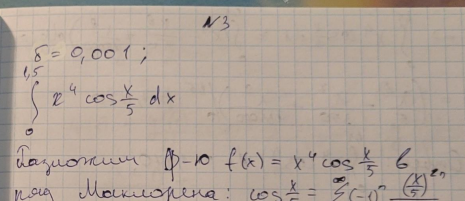 N3
δ = 0,001;
1,5
∫ x⁴ cos x/5 dx
0
Разложим ф-ю f(x) = x⁴ cos x/5 в
ряд Маклорена: cos x/5 = ∞ Σ (-1)ⁿ (x/5)²ⁿ